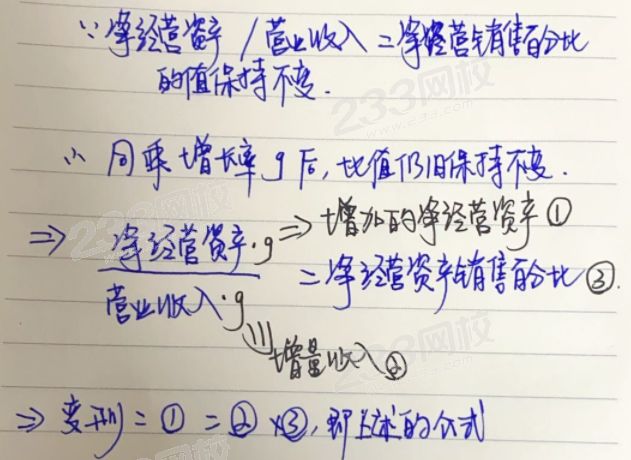 ∵ 净经营资产 / 营业收入 = 净经营销售百分比
的值保持不变.
∴ 同乘增长率 g 后, 比值仍旧保持不变.
⇒ 净经营资产·g ⇒ 增加的净经营资产 ①
营业收入·g = 净经营资产销售百分比 ③.
增量收入 ②
⇒ 变形 = ① = ② × ③, 即上述的公式
233网校
www.233.com